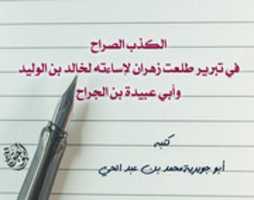 الكذب الصراح
في تبرير طلعت زهران لإساءته لخالد بن الوليد
وأبي عبيدة بن الجراح
كتبه
أبو جويرية محمد بن عبد الحي